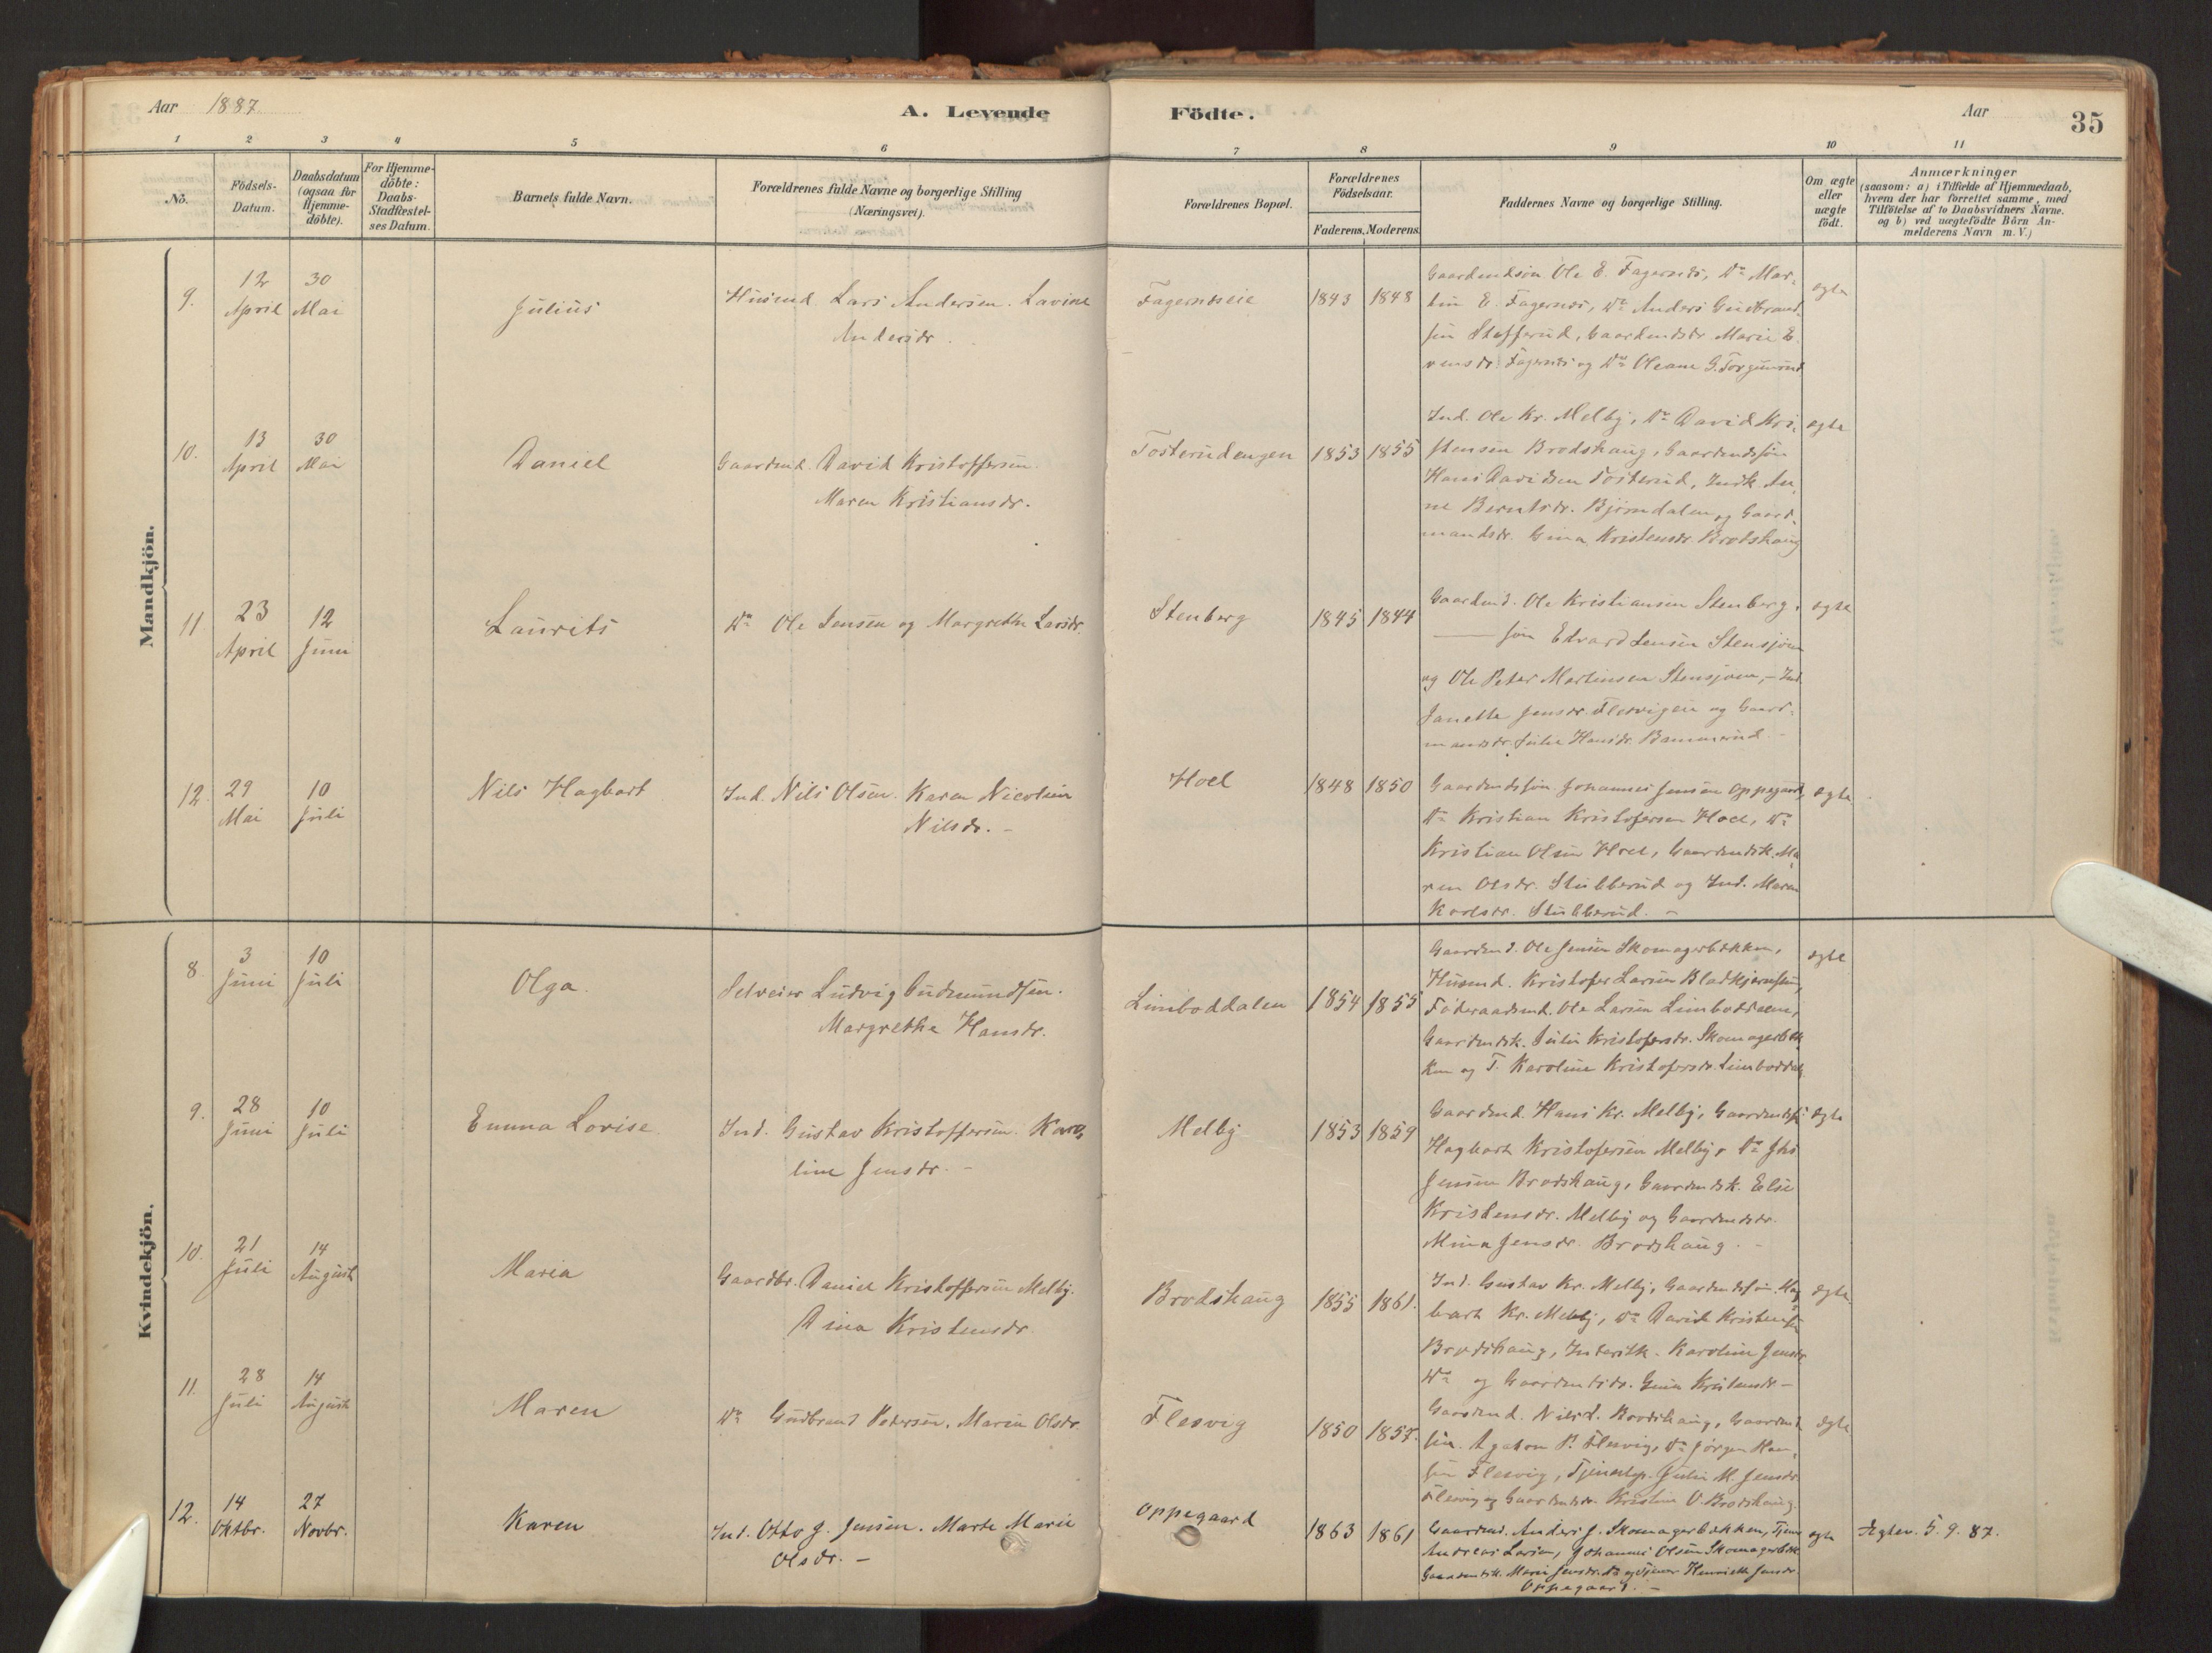 Aar 1887. A. Levende Födte. Aar 35
1 2 3 4 5 6 7 8 9 10 11
No. Födsels-Datum. Daabsdatum (ogsaa for Hjemmedöbte). For Hjemmedöbte: Daabs-Stadfæstelses Datum. Barnets fulde Navn. Forældrenes fulde Navne og borgerlige Stilling (Næringsvei). Forældrenes Bopæl. Forældrenes Födselsaar. Faderens. Moderens. Faddernes Navne og borgerlige Stilling. Om ægte eller uægte födt. Anmærkninger (saasom: a) i Tilfælde af Hjemmedaab, hvem der har forrettet samme, med Tilföielse af to Daabsvidners Navne. og b) ved uægtefödte Börn Anmelderens Navn m. V.)
Mandkjön.
9. 12 April 30 Mai Julius Husmd. Lars Andersen. Lavine
Andersdr.
Fagernæseie 1843 1848 Gaardmdsøn Ole E. Fagernæs, Do Mar-
tin E. Fagernæs, Do Anders Gudbrand-
sen Stefferud, Gaardmdsdr. Marie E-
vensdr. Fagernæs og Do Oleane G. Torgunrud
ægte
10. 13 April 30 Mai Daniel Gaardmd. David Kristoffersen.
Maren Kristiansdr.
Tosterudengen 1853 1855 Ind. Ole Kr. Melby, Do David Kri-
stensen Brodshaug, Gaardmdssøn
Hans Davidsen Tosterud, Indk. An-
ne Berntsdr. Bjørndalen og Gaard-
mandsdr. Gina Kristensdr. Brodshaug
ægte
11. 23 April 12 Juni Laurits Do Ole Jensen og Margrethe Larsdr.
Stenberg 1845 1844 Gaardmd. Ole Kristiansen Stenberg,
— søn Edvard Jensen Stensjøen
og Ole Peter Martinsen Stensjøen, – Ind.
Janette Jensdr. Flesvigeie og Gaard-
mandsdr. Julie Hansdr. Bammerud. –
ægte
12. 29 Mai 10 Juli Nils Hagbart Ind. Nils Olsen. Karen Nicoline
Nilsdr. –
Hoel 1848 1850 Gaardmdssøn Johannes Jensen Oppegaard,
Do Kristian Kristofersen Hoel, Do
Kristian Olsen Hoel, Gaardmdsk. Ma-
ren Olsdr. Stubberud og Ind. Maren
Karlsdr. Stubberud. –
ægte
Kvindekjön.
8 3 Juni 10 Juli Olga. Selveier Ludvig Gudmundsen.
Margrethe Hansdr.
Limboddalen 1854 1855 Gaardmd. Ole Jensen Skomagerbækken,
Husmd. Kristofer Larsen
Føderaadsmd. Ole Larsen Limboddalen,
Gaardmdsk. Julie Kristofersdr. Skomagerbæk-
ken og T. Karoline Kristofersdr. Limboddal
ægte
9. 28 Juni 10 Juli Emma Lovise Ind. Gustav Kristoffersen. Karo-
line Jensdr. –
Melby 1853 1859 Gaardmd. Hans Kr. Melby, Gaardmdssøn
Hagbart Kristofersen Melby, Do Jhs
Jensen Brodshaug, Gaardmdsk. Else
Kristensdr. Melby og Gaardmdsdr.
Mina Jensdr. Brodshaug. –
ægte
10. 21 Juli 14 August Maria Gaardbr. Daniel Kristoffersen Melby.
Dina Kristensdr.
Brodshaug 1855 1861. Ind. Gustav Kr. Melby, Gaardmdssøn Hag-
bart Kr. Melby, Do David Kristensen
Brodshaug, Inderstk. Karoline Jensdr.
Do og Gaardmdsdr. Gina Kristensdr –
ægte
11. 28 Juli 14 August Maren Do Gudbrand Pedersen. Maria Olsdr.
Flesvig 1850 1857. Gaardmd. Nils J. Brodshaug, Gaardmd-
søn. Agaton P. Flesvig, Do Jørgen Han-
sen Flesvig, Tjenestep. Julie M. Jensdr.
Flesvig og Gaardmdsdr. Kristine O. Brodshaug.
ægte
12. 14 Oktbr. 27 Novbr. Karen Ind. Otto J. Jensen. Marte Marie
Olsdr. –
Oppegaard 1863 1861 Gaardmd. Anders J. Skomagerbækken, Tjener
Andreas Larsen, Johannes Olsen Skomagerbæk
Gaardmdsk. Marie Jensdr. Do og Tjener Henriette Jensdr
Oppegaard. –
ægte Ægtev. 5. 9. 87.